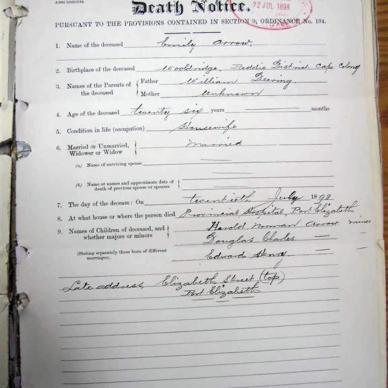 Death Notice.
22 JUL 1898
PURSUANT TO THE PROVISIONS CONTAINED IN SECTION 9, ORDINANCE No. 104.
1. Name of the deceased Emily Arrow.
2. Birthplace of the deceased Wooldridge, Peddie District Cape Colony
3. Names of the Parents of the deceased
Father William
Mother Unknown
4. Age of the deceased twenty six years months
5. Condition in life (occupation) Housewife
6. Married or Unmarried, Widower or Widow Married
(a) Name of surviving spouse
(b) Name or names and approximate date of death of previous spouse or spouses
7. The day of the decease: On twentieth July 1898
8. At what house or where the person died Provincial Hospital, Port Elizabeth
9. Names of Children of deceased, and whether majors or minors
Harold Norman Arrow minor
Douglas Charles
(Stating separately those born of different marriages.)
Edward Henry
Late address Elizabeth Street (top)
Port Elizabeth